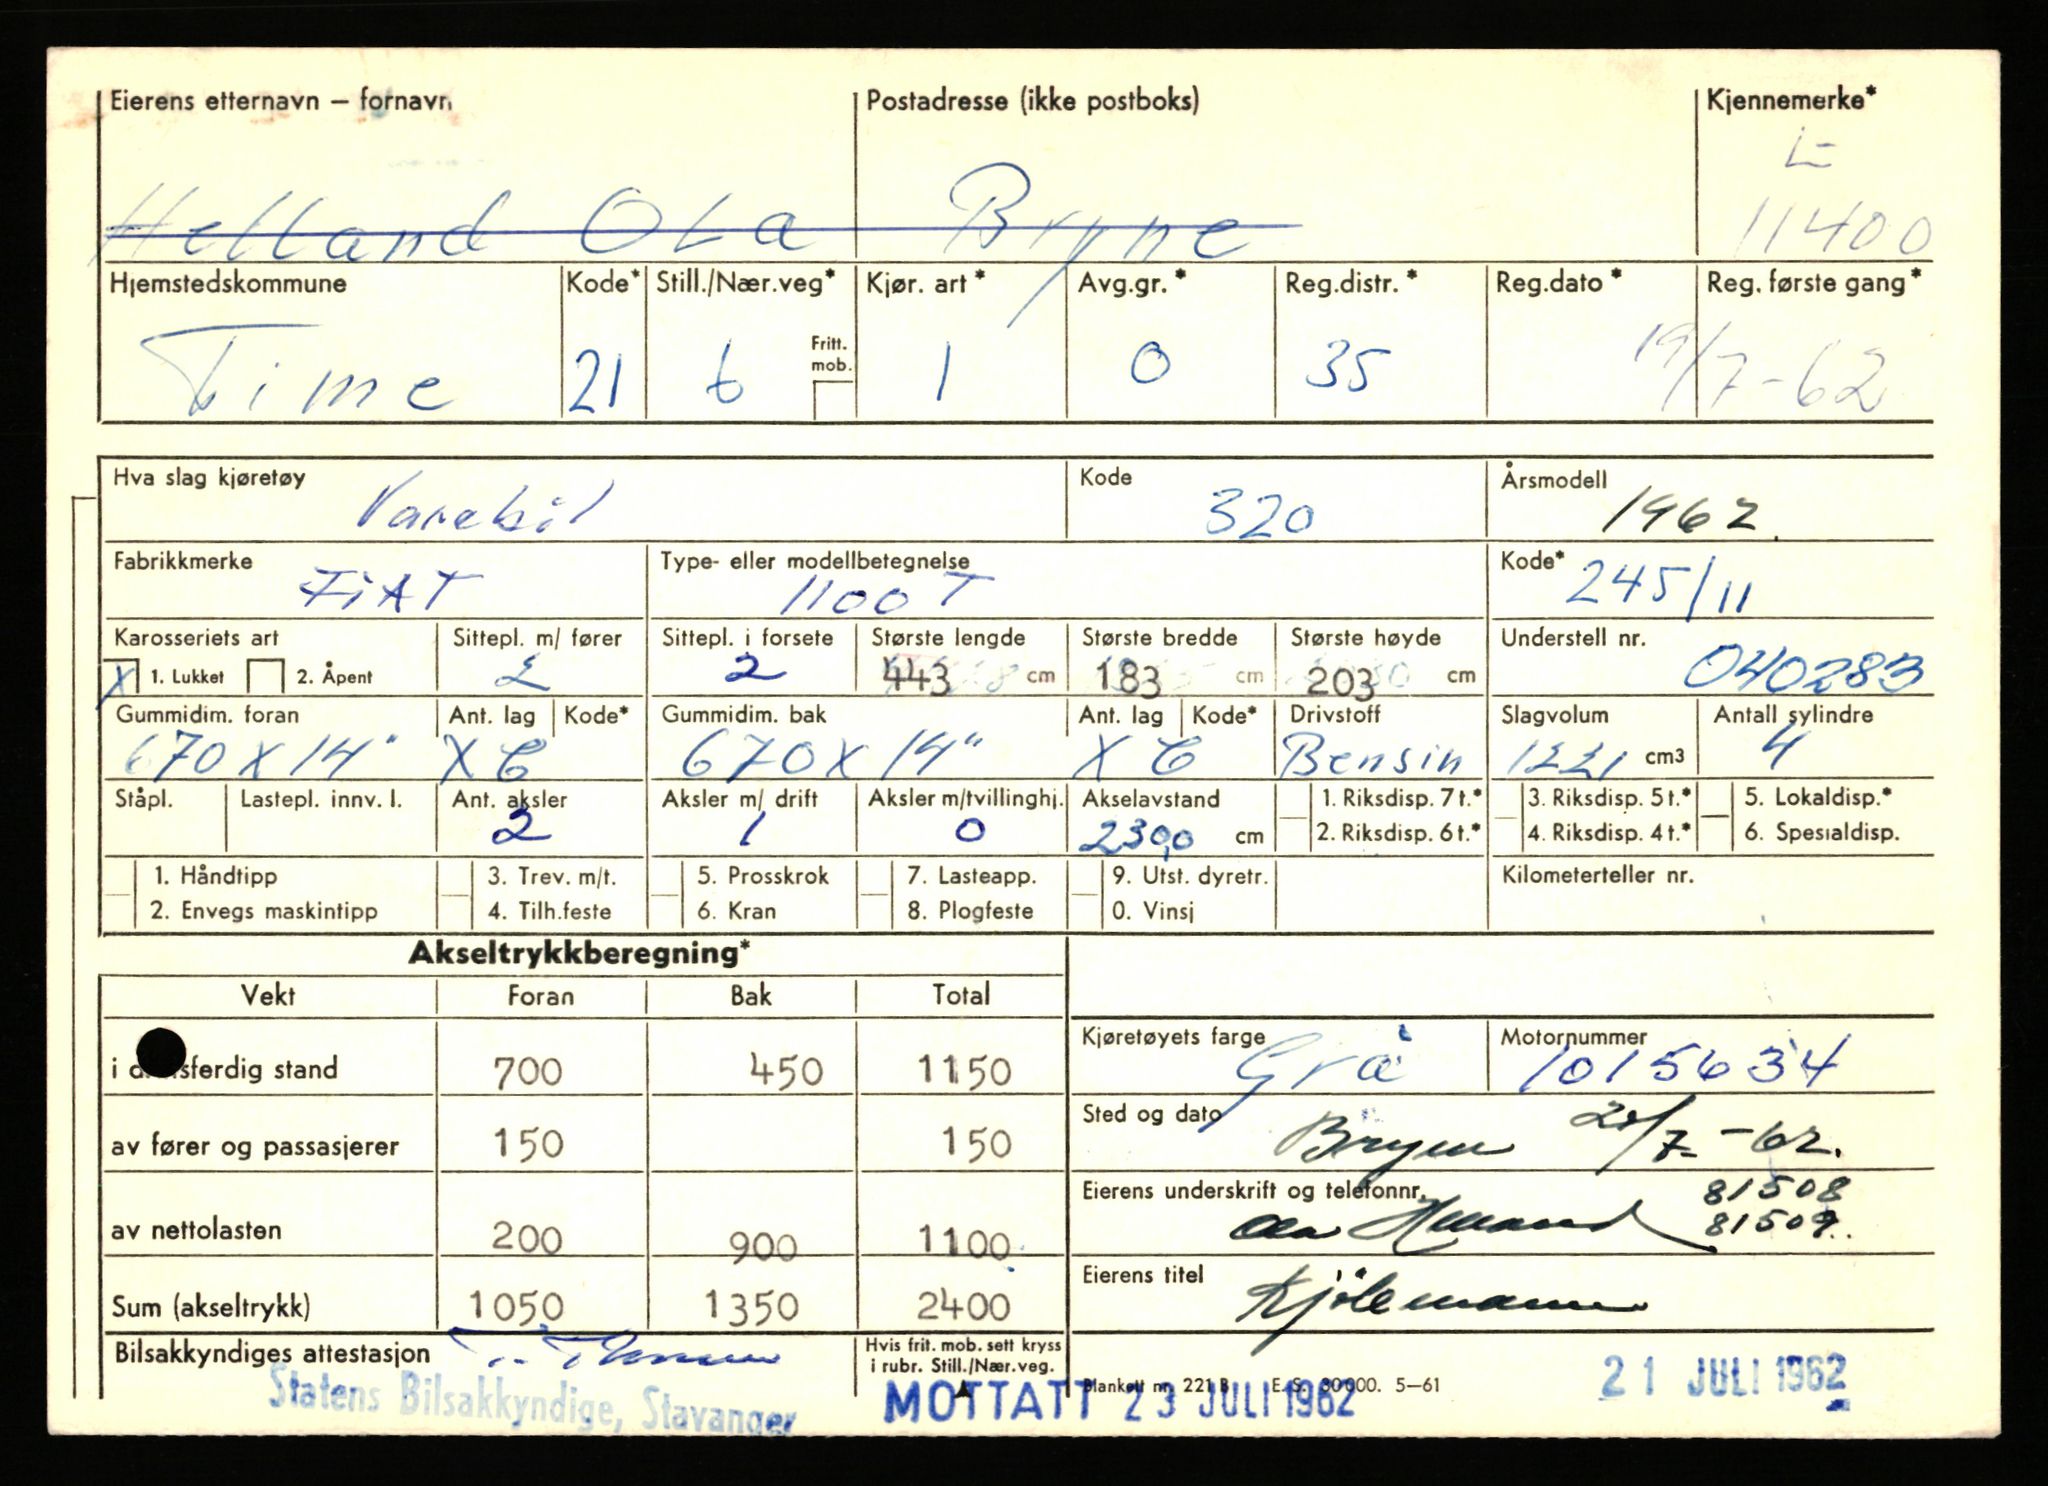 Eierens etternavn – fornavn Postadresse (ikke postboks) Kjennemerke*
L-
Helland Ola Bryne 11400
Hjemstedskommune Kode* Still./Nær.veg* Kjør. art* Avg.gr.* Reg.distr.* Reg.dato* Reg. første gang*
Fritt. mob.
Time 21 6 1 0 35 19/7-62
Hva slag kjøretøy Kode Årsmodell
Varebil 320 1962.
Fabrikkmerke Type- eller modellbetegnelse Kode*
FiAT 1100 T 245/11
Karosseriets art Sittepl. m/ fører Sittepl. i forsete Største lengde Største bredde Største høyde Understell nr.
X 1. Lukket 2. Åpent 2 2 443 cm 183 cm 203 cm 040283
Gummidim. foran Ant. lag Kode* Gummidim. bak Ant. lag Kode* Drivstoff Slagvolum Antall sylindre
670 x 14" X C 670 x 14" X C Bensin 1221 cm3 4
Ståpl. Lastepl. innv. l. Ant. aksler Aksler m/ drift Aksler m/tvillinghj. Akselavstand 1. Riksdisp. 7 t.* 3. Riksdisp. 5 t.* 5. Lokaldisp.*
2 1 0 230,0 cm 2. Riksdisp. 6 t.* 4. Riksdisp. 4 t.* 6. Spesialdisp.
1. Håndtipp 3. Trev. m/t. 5. Prosskrok 7. Lasteapp. 9. Utst. dyretr. Kilometerteller nr.
2. Envegs maskintipp 4. Tilh.feste 6. Kran 8. Plogfeste 0. Vinsj
Akseltrykkberegning*
Vekt Foran Bak Total
Kjøretøyets farge Motornummer
i sferdig stand 700 450 1150 Grå 1015634
Sted og dato
av fører og passasjerer 150 150 Bryne 20/7-62.
Eierens underskrift og telefonnr. 81508
av nettolasten 200 900 1100 Ola Helland 81509.
Eierens titel
Sum (akseltrykk) 1050 1350 2400 Kjölemann
Bilsakkyndiges attestasjon Hvis frit. mob. sett kryss
i rubr. Still./Nær.veg.
Statens Bilsakkyndige, Stavanger MOTTATT 23 JULI 1962 Blankett nr. 221 B E. S. 80000. 5–61 21 JULI 1962